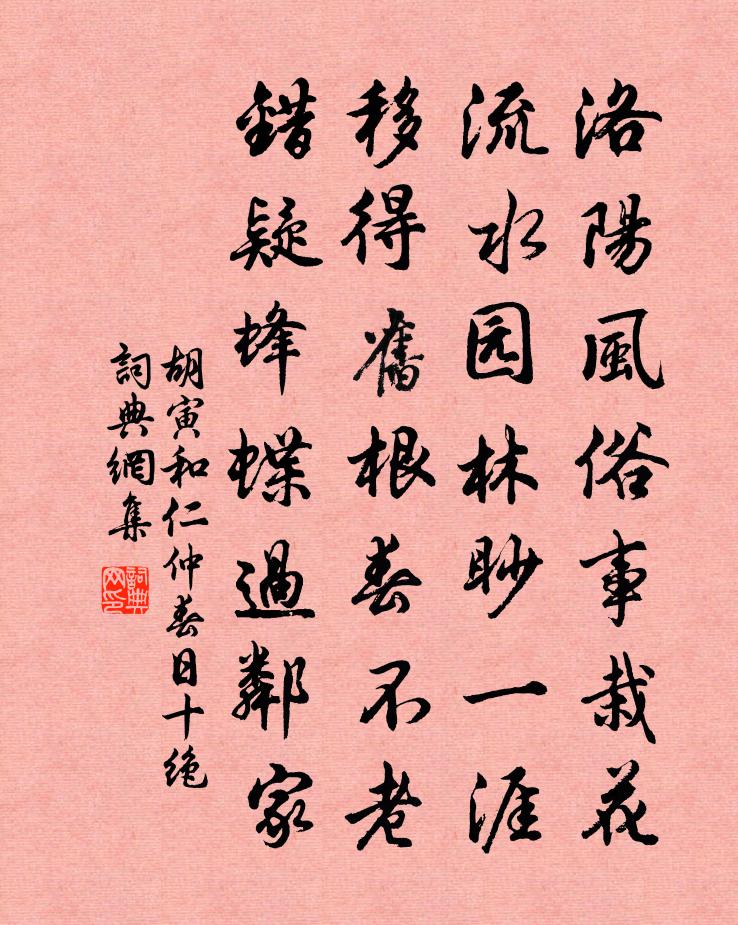 洛陽風俗事栽花
流水园林眇一涯
移得舊根春不老
錯疑蜂蝶過鄰家
胡寅和仁仲春日十绝
詞典網集
詞典网印